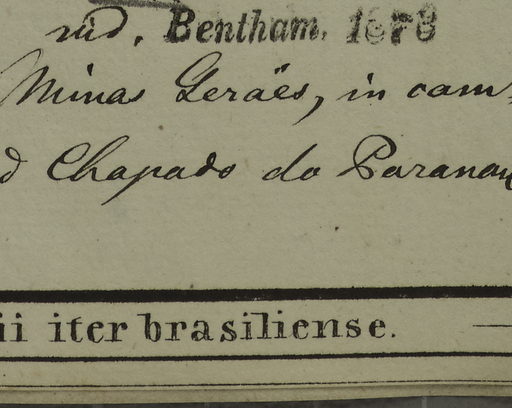 rid. Bentham. 1878
Minas Geraës, in cam
d Chapado do Paranan
ii iter brasiliense.